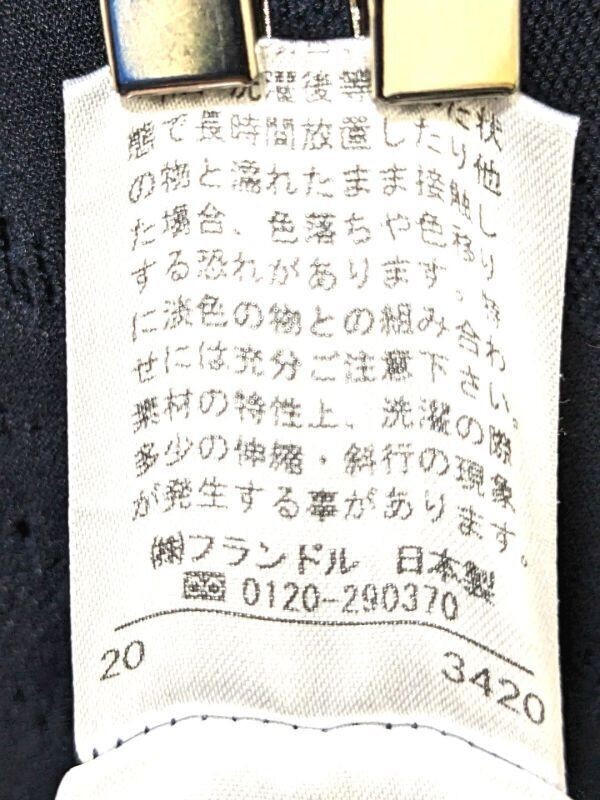 洗濯後等
状態で長時間放置したり他
の物と濡れたまま接触し
た場合、色落ちや色移り
する恐れがあります。特
に淡色の物との組み合わ
せには充分ご注意下さい。
素材の特性上、洗濯の際
多少の伸縮・斜行の現象
が発生する事があります。
㈱フランドル 日本製
0120-290370
20 3420